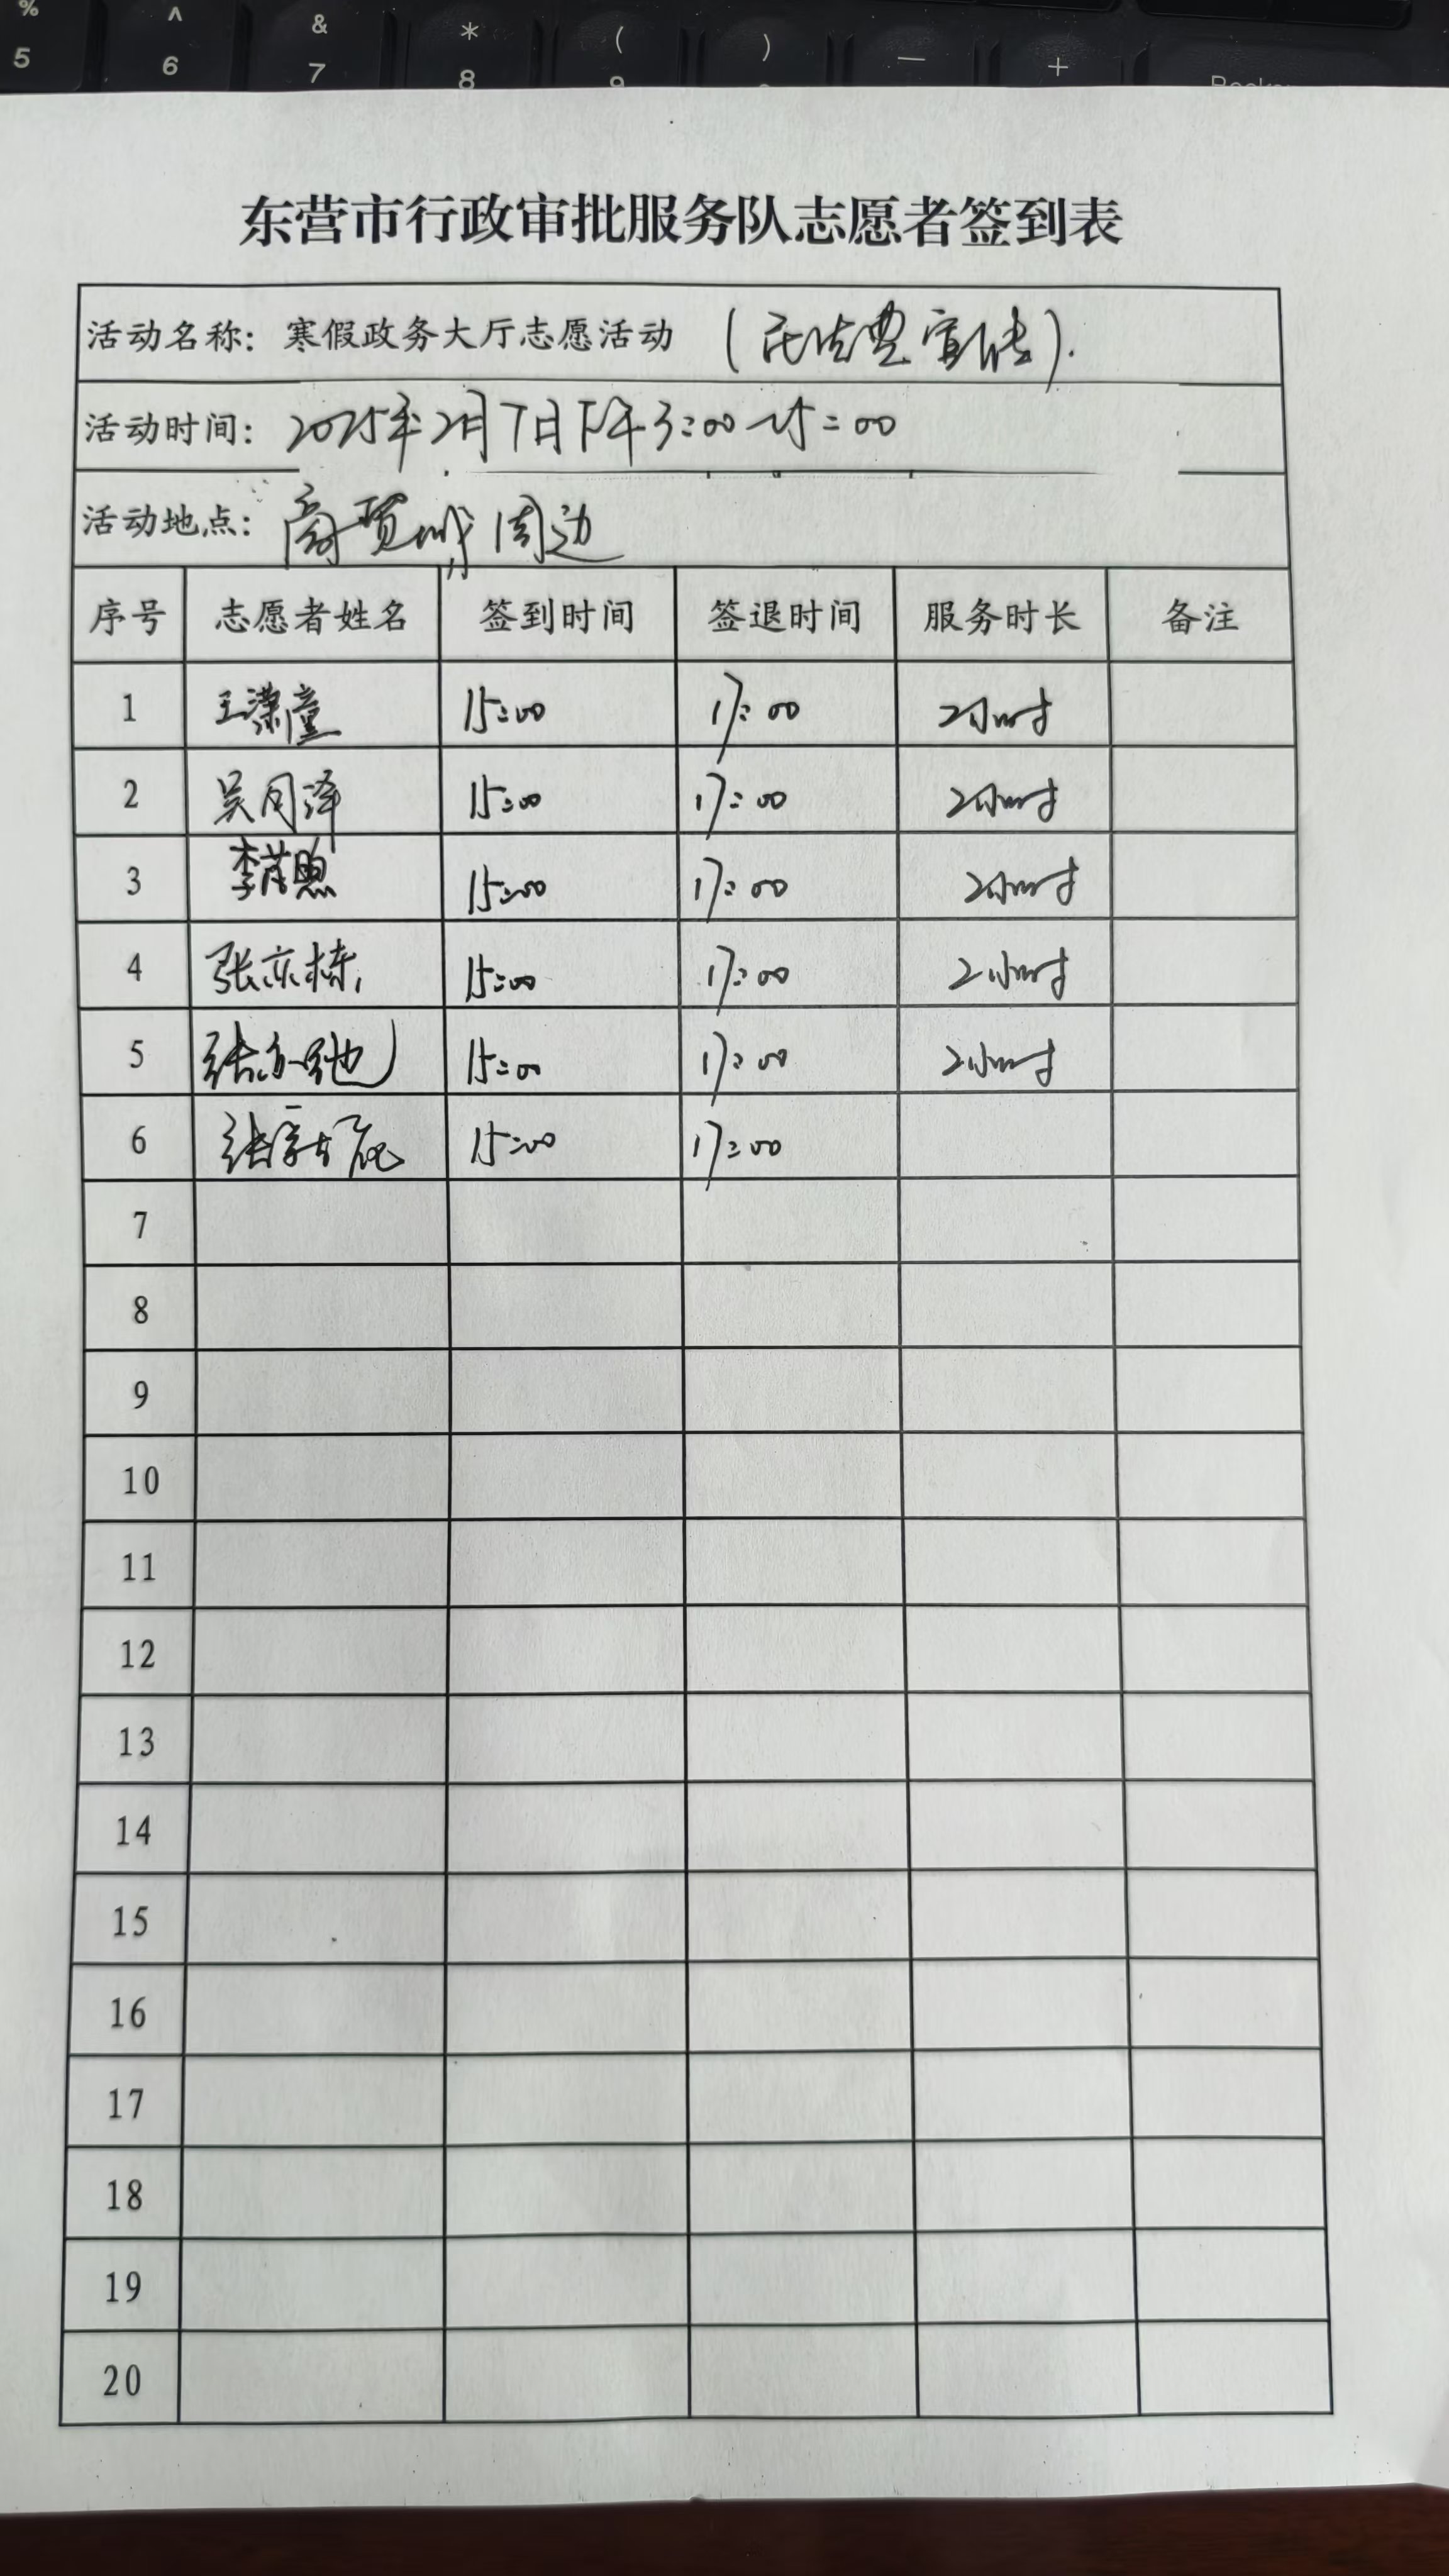 % 5 ^ 6 & 7 * 8 ( 9 ) — +
东营市行政审批服务队志愿者签到表
活动名称：寒假政务大厅志愿活动（民法典宣传）.
活动时间：2025年2月7日下午3:00~15:00
活动地点：商贸城周边
序号 志愿者姓名 签到时间 签退时间 服务时长 备注
1 王潇童 15:00 17:00 2小时
2 吴同泽 15:00 17:00 2小时
3 李 15:00 17:00 2小时
4 张东栋 15:00 17:00 2小时
5 张 15:00 17:00 2小时
6 张 15:00 17:00
7
8
9
10
11
12
13
14
15
16
17
18
19
20